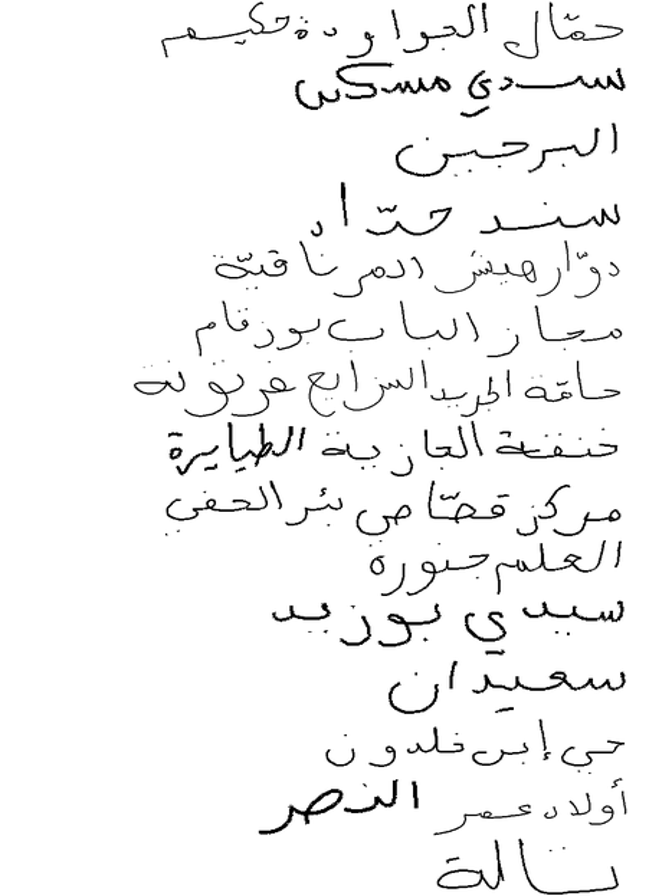 حمّال الجواودة حكيم
سيدي مسكين
البرجين
سند حدّاد
دوّار هيشر المرناقية
مجاز الباب بورقام
حامّة الجريد السرايع فريونة
خنقة الجازية الطيايرة
مركز قصّاص بئر الحفي
العلم جنورة
سيدي بوزيد
سعيدان
حي إبن خلدون
أولاد عمر النصر
تالة